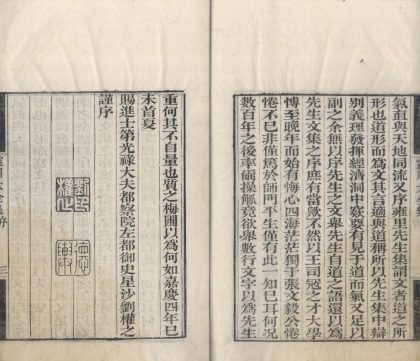 氣直與天地同流又序雍里先生集謂文者道之所
形也道形而為文其言適與道稱所以先生集中辯
別義理發揮經濟洞中窾要有見于道而氣又足以
副之余無以序先生文卽舉先生自道之語還以為
先生文集之序庶有當歟不然以王司寇之才大學
博至晚年而始有悔心四海茫茫獨于張文毅公惓
惓不已非僅為於師門平生僅有此一知己耳何況
數百年之後率爾操觚竟欲舉數行文字以為先生
重何其不自量也質之梅圃以為何如嘉慶四年巳
未首夏
賜進士第光祿大夫都察院左都御史星沙劉權之
謹序
三